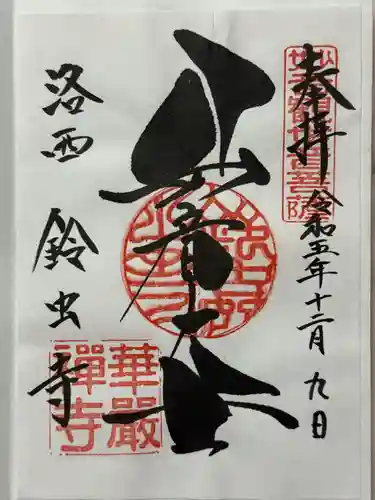 奉拝
令和五年十二月九日
妙音
洛西 鈴虫寺
華嚴
禪寺